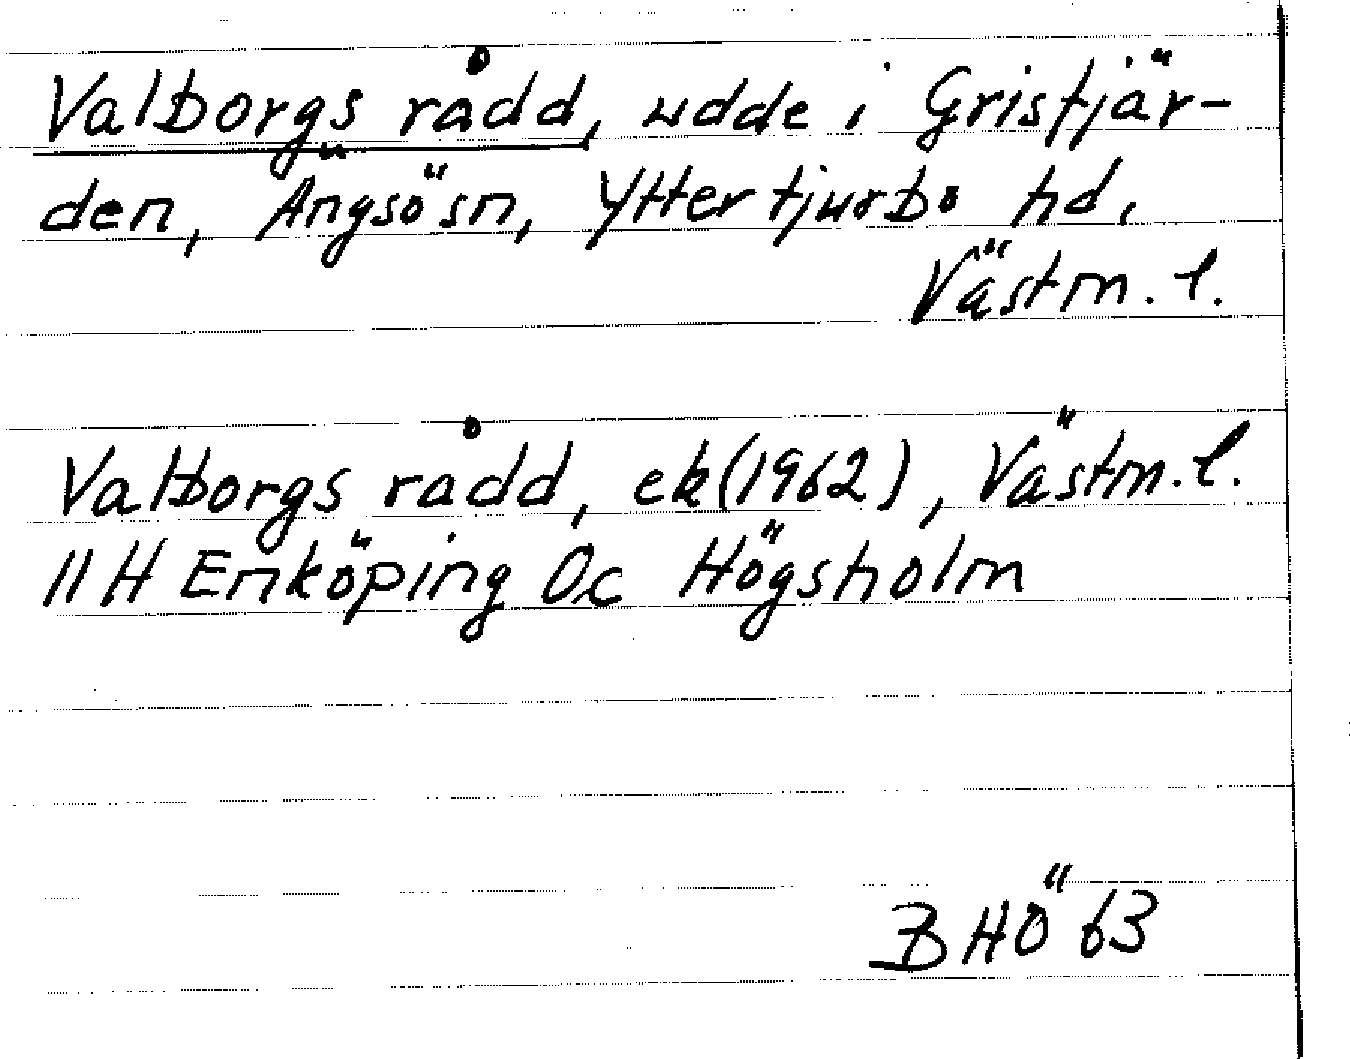 Valborgs rådd, udde i Grisfjär-
den, Ängsösn, Yttertjurbo hd,
Västm. l.
Valborgs rådd, ek (1962), Västm. l.
11 H Enköping 0c Högsholm
BHÖ 63